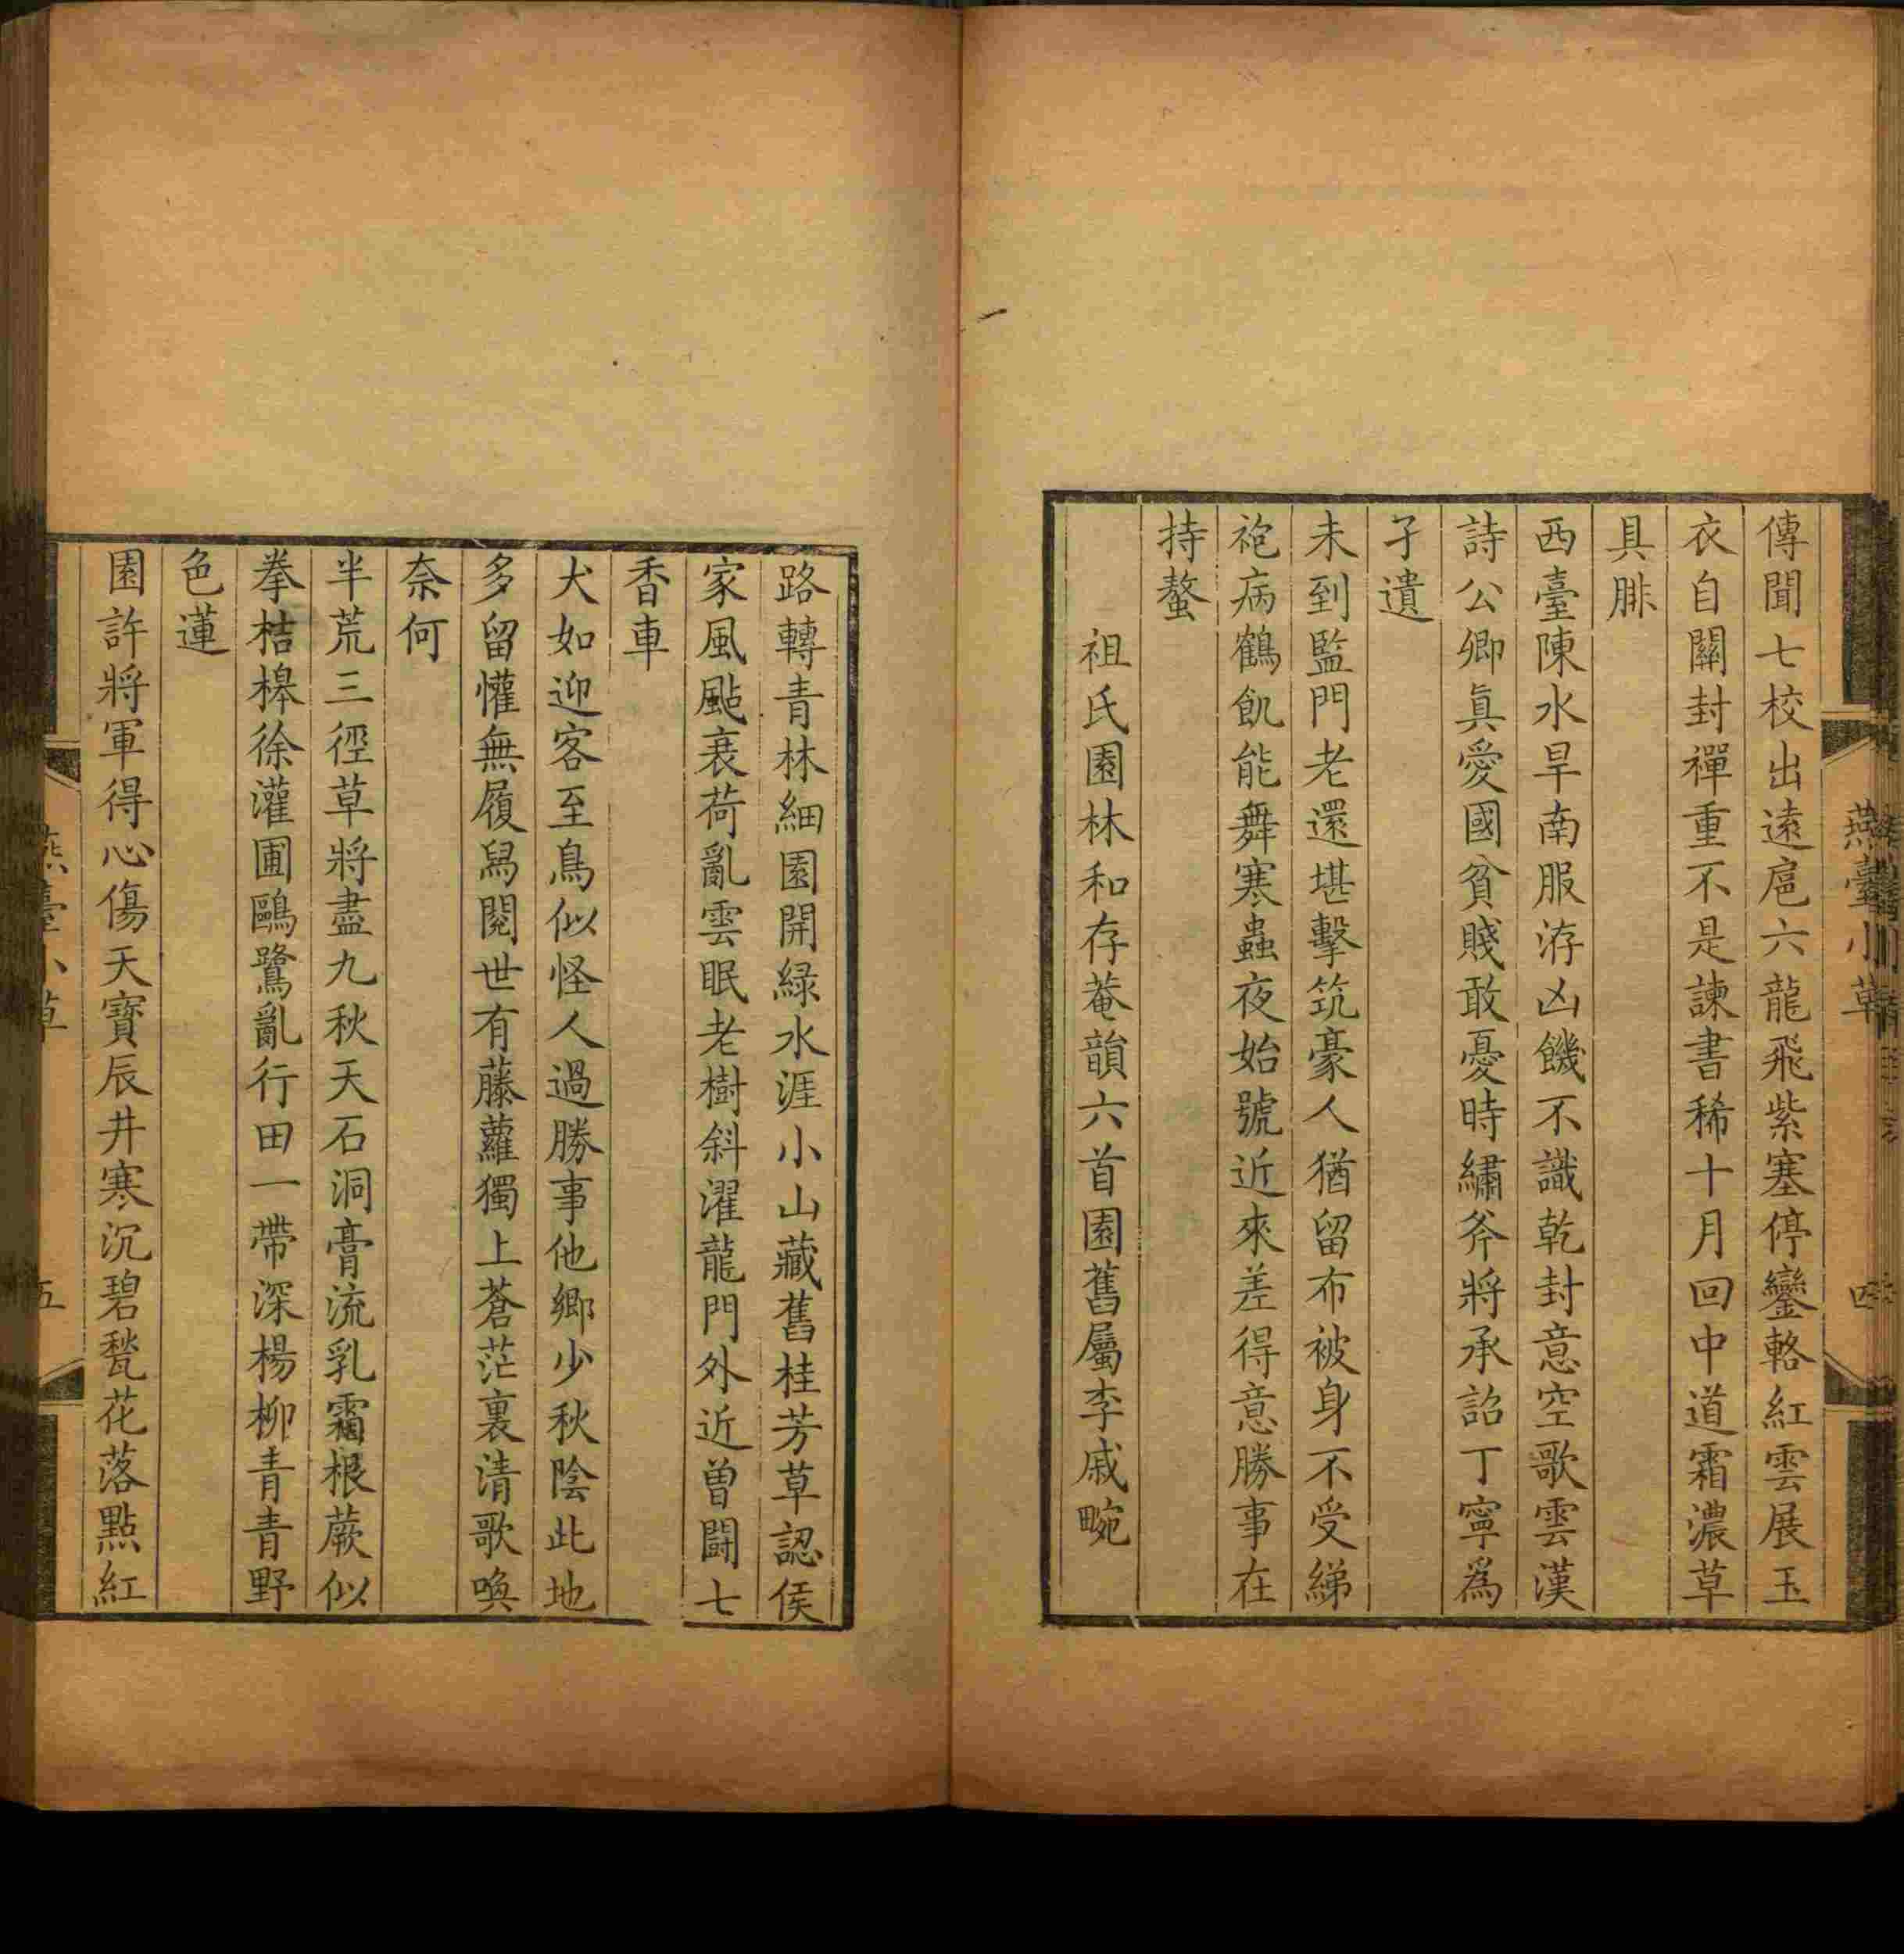 傳聞七校出遠扈六龍飛紫塞停鑾輅紅雲展玉
衣自關封禪重不是諫書稀十月回中道霜濃草
具腓
西臺陳水旱南服洊凶饑不識乾封意空歌雲漢
詩公卿真愛國貧賤敢憂時繡斧將承詔丁寧為
孑遺
未到監門老還堪擊筑豪人猶留布被身不受綈
袍病鶴飢能舞寒蟲夜始號近來差得意勝事在
持螯
祖氏園林和存菴韻六首園舊屬李戚畹
路轉青林細園開緑水涯小山藏舊桂芳草認侯
家風颭衰荷亂雲眠老樹斜濯龍門外近曾鬪七
香車
犬如迎客至鳥似怪人過勝事他鄉少秋陰此地
多留懽無履舄閱世有藤蘿獨上蒼茫裏清歌喚
奈何
半荒三徑草將盡九秋天石洞膏流乳霜根蕨似
拳桔槹徐灌圃鷗鷺亂行田一帶深楊柳青青野
色蓮
園許將軍得心傷天寶辰井寒沉碧甃花落點紅
燕臺小草
四
燕臺小草
五